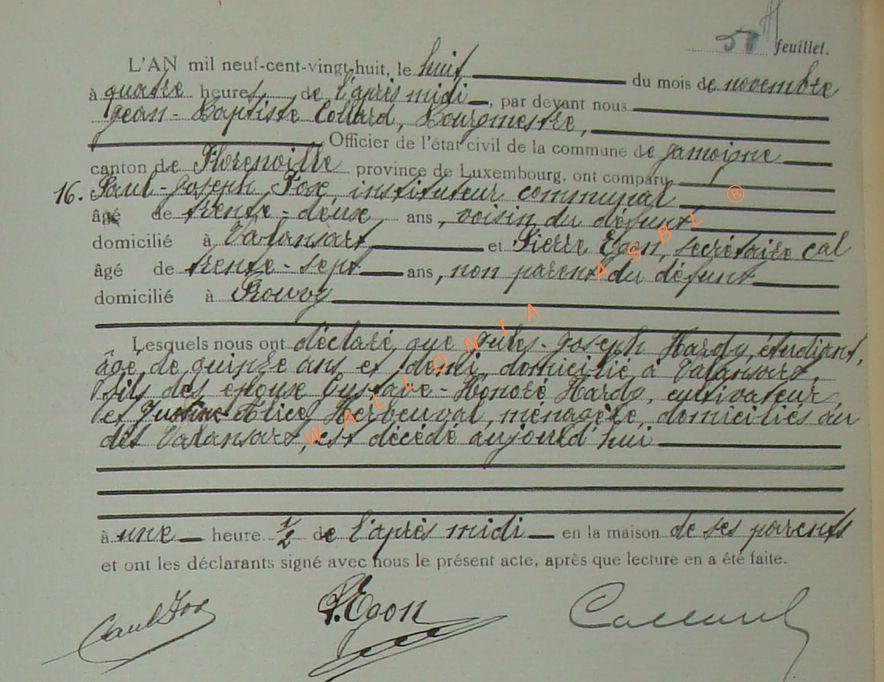 58 feuillet.
L'AN mil neuf-cent-vingt-huit, le huit du mois de novembre
à quatre heures de l'après midi, par devant nous
Jean-Baptiste Collard, Bourgmestre,
Officier de l'état civil de la commune de Jamoigne
canton de Florenville province de Luxembourg, ont comparu
16. Paul-Joseph Fox, instituteur communal
âgé de trente-deux ans, voisin du défunt
domicilié à Valansart et Pierre Egon, secrétaire cal
âgé de trente-sept ans, non parent du défunt
domicilié à Rouvoy
Lesquels nous ont déclaré que Jules-Joseph Hardy, étudiant,
âgé de quinze ans et demi, domicilié à Valansart,
fils des époux Gustave-Honoré Hardy, cultivateur,
et Justine Alice Herbeuval, ménagère, domiciliés au
dès Valansart, est décédé aujourd'hui
à une heure 1/2 de l'après midi en la maison de ses parents
et ont les déclarants signé avec nous le présent acte, après que lecture en a été faite.
Paul Fox P. Egon Collard
WALLONIA ASBL ®